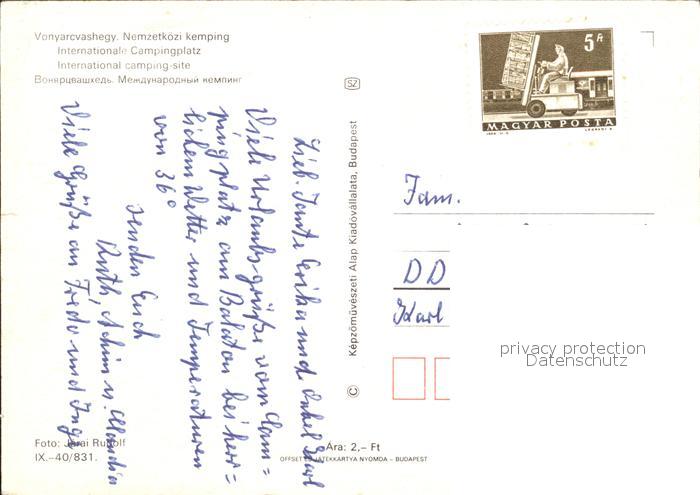 Vonyarcvashegy. Nemzetközi kemping
Internationale Campingplatz
International camping-site
Вонярцвашхедь. Международный кемпинг
Lieb. Tante Erika und Onkel Karl
Viele Urlaubsgrüße vom Cam=
pingplatz am Balaton bei herr=
lichem Wetter und Temperaturen
von 36°
senden Euch
Ruth, Achim u. Claudia
Viele Grüße an Fredo und Inge
Foto: Járai Rudolf
IX.–40/831.
SZ
Képzőművészeti Alap Kiadóvállalata, Budapest
©
Ára: 2,– Ft
OFFSET ÉS JÁTÉKKÁRTYA NYOMDA – BUDAPEST
5 Ft
MAGYAR POSTA
Fam.
DD
Karl
privacy protection
Datenschutz